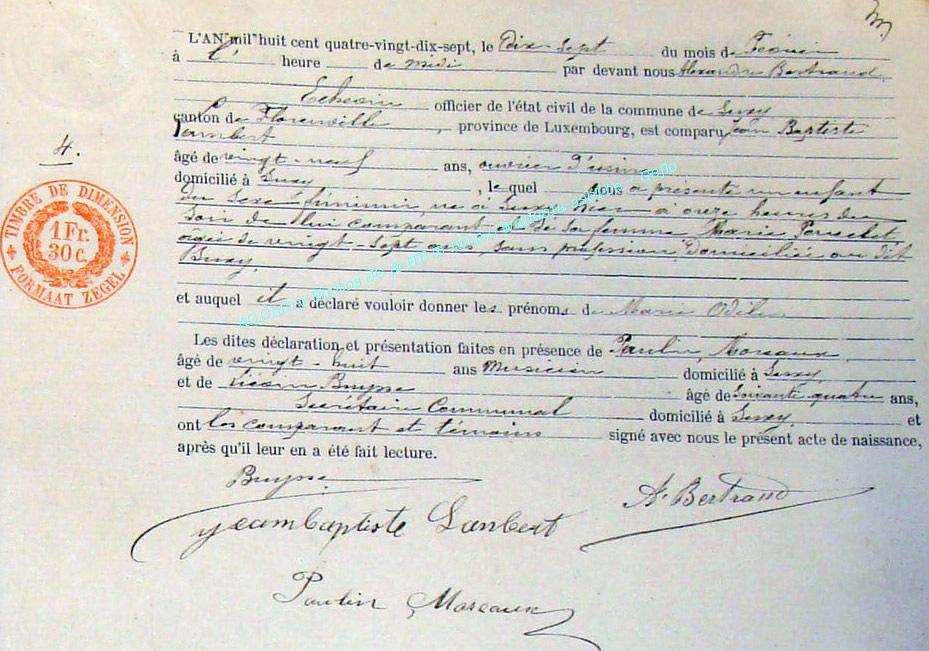 L'AN mil huit cent quatre-vingt-dix-sept, le Dix-Sept du mois de Février
à l' heure de midi par devant nous Alexandre Bertrand,
Echevin officier de l'état civil de la commune de Suxy,
canton de Florenville, province de Luxembourg, est comparu Jean Baptiste
Lambert
4.
âgé de vingt-neuf ans, ouvrier d'usine
domicilié à Suxy, le quel nous a présenté un enfant
du sexe féminin, né à Suxy hier à onze heures du
soir de lui comparant et de sa femme Marie
âgée de vingt-sept ans, sans profession Domiciliée au dit
Suxy,
et auquel il a déclaré vouloir donner les prénoms de Marie Odile
Les dites déclaration et présentation faites en présence de Paulin Moreaux
âgé de vingt-huit ans Musicien domicilié à Suxy,
et de Buysse âgé de Soixante quatre ans,
Secrétaire Communal domicilié à Suxy, et
ont les comparant et témoins signé avec nous le présent acte de naissance,
après qu'il leur en a été fait lecture.
Buysse
A. Bertrand
Jean baptiste Lambert
Paulin Moreaux
TIMBRE DE DIMENSION
1 Fr.
30 C.
FORMAAT ZEGEL